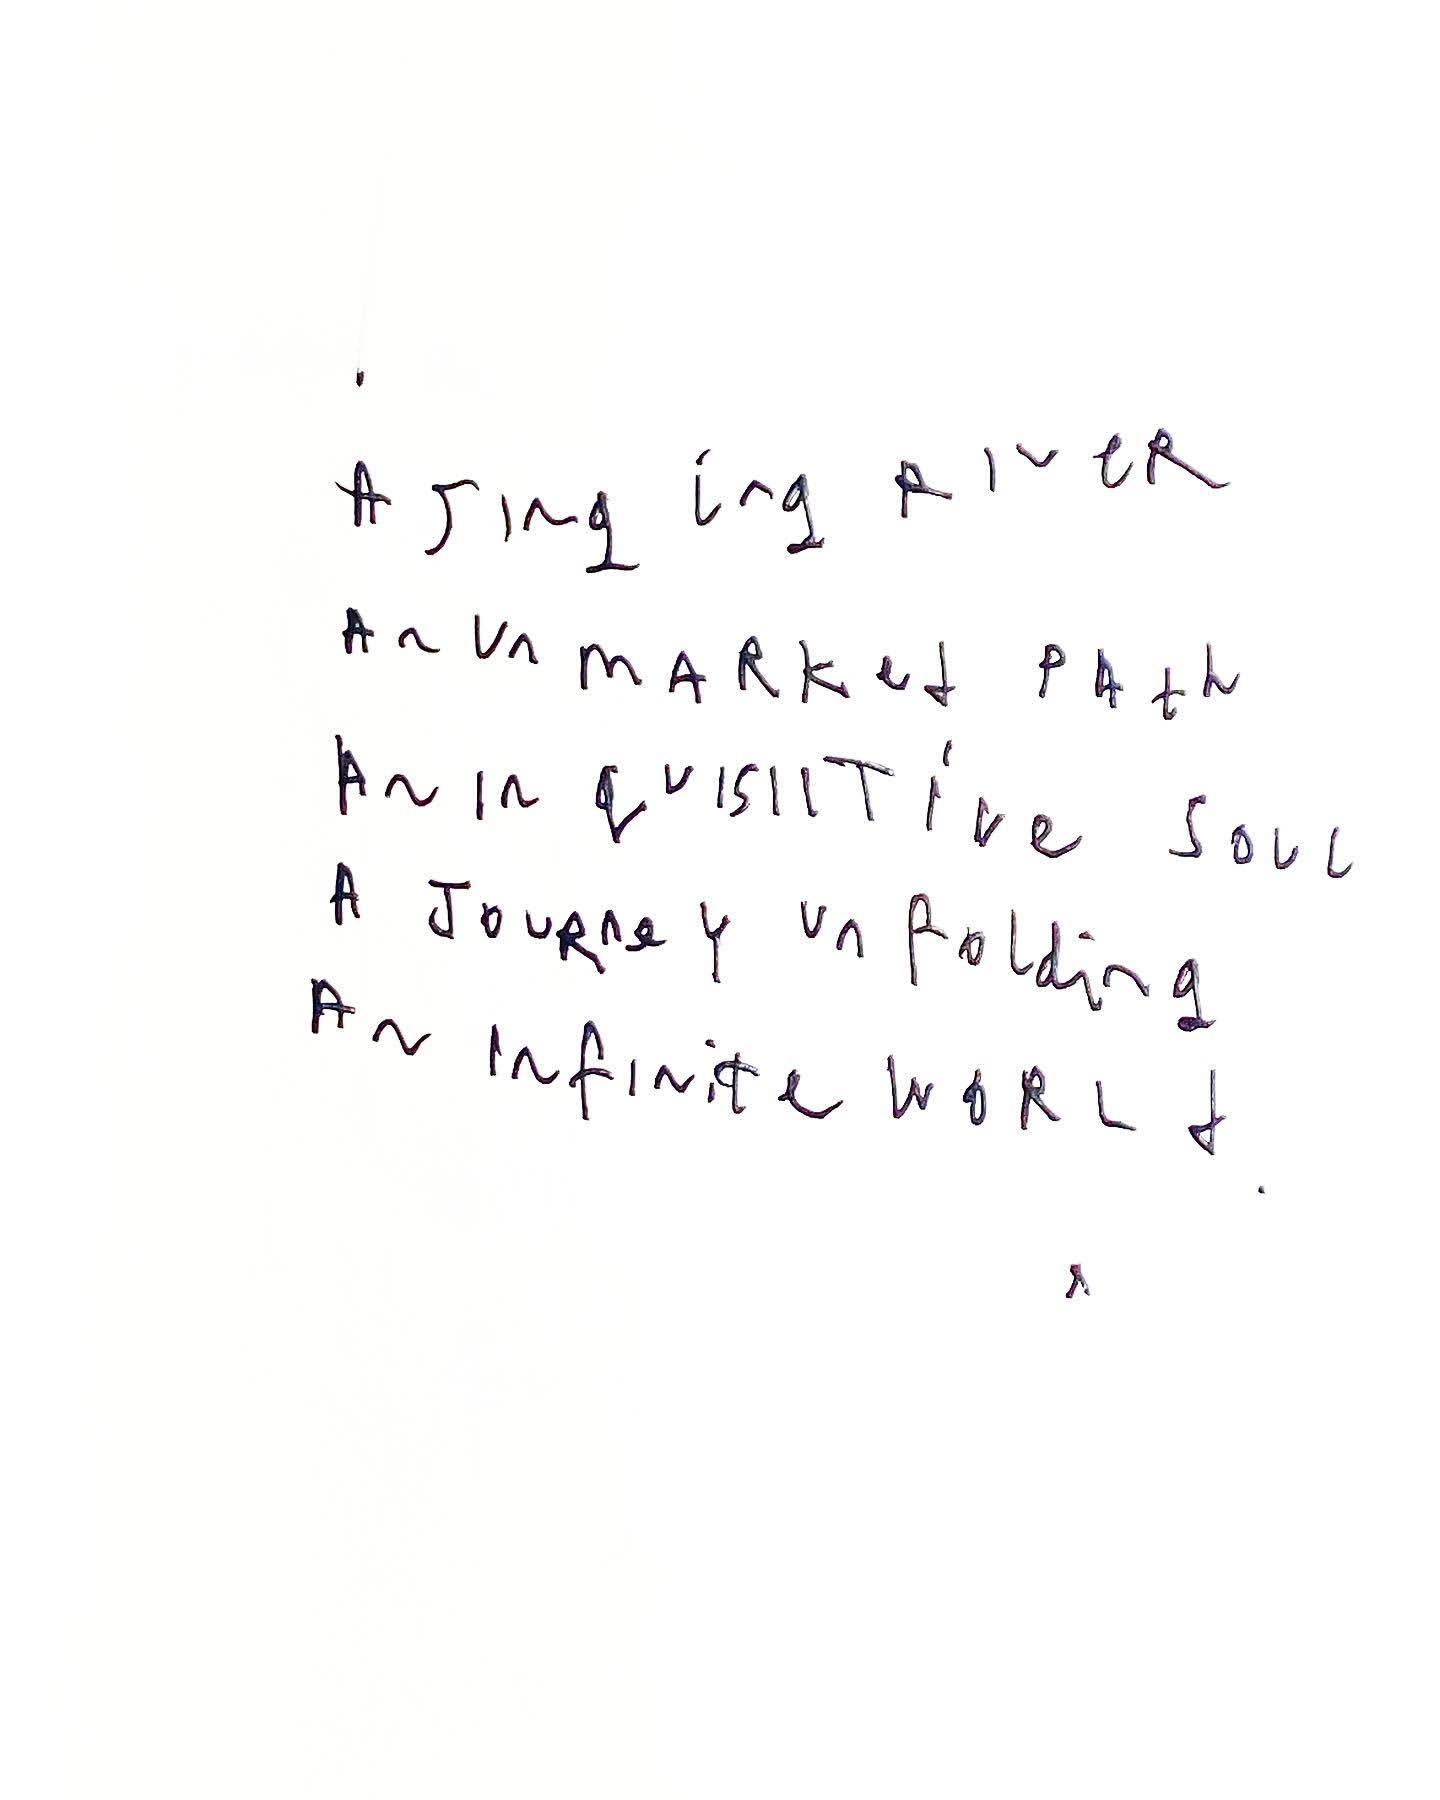 A singing RIVER
An UnMARKed PAth
An InqUISIITive SOUL
A JOURNeY Unfolding
An Infinite WORLd.